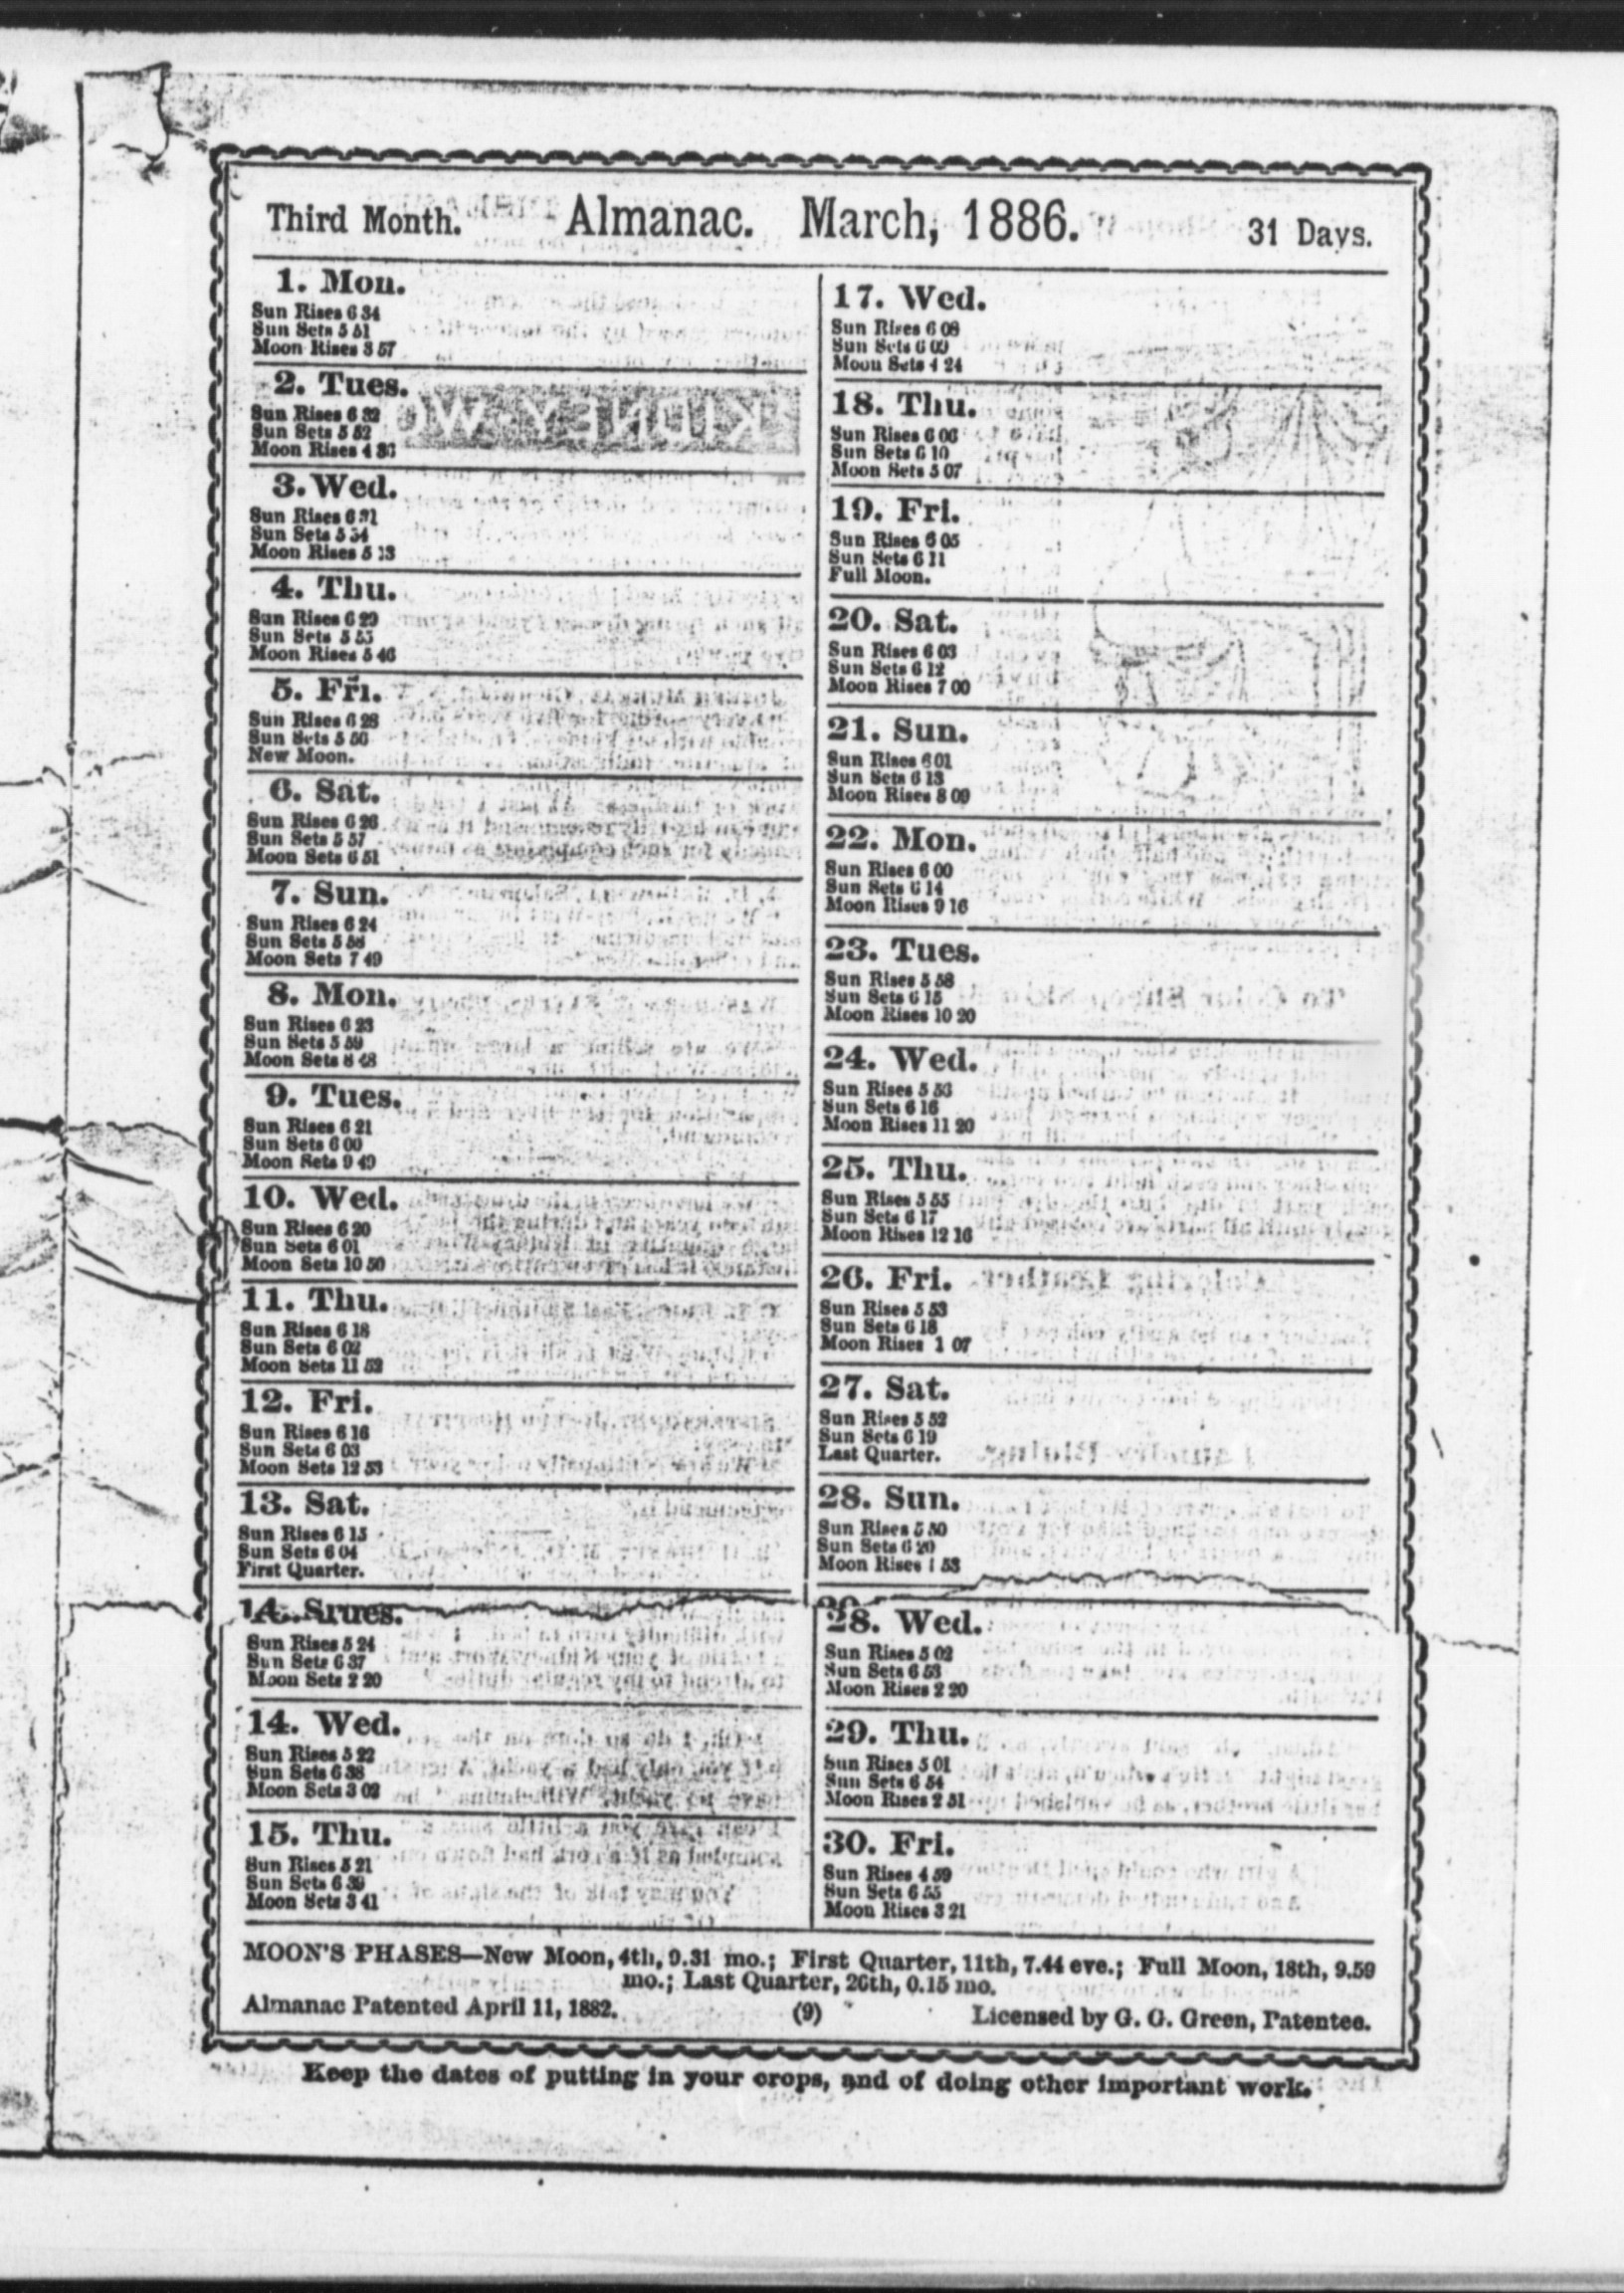 Third Month. Almanac. March, 1886. 31 Days.
1. Mon.
Sun Rises 6 34
Sun Sets 5 51
Moon Rises 3 57
2. Tues.
Sun Rises 6 32
Sun Sets 5 52
Moon Rises 4
3. Wed.
Sun Rises 6 31
Sun Sets 5 54
Moon Rises 5 13
4. Thu.
Sun Rises 6 29
Sun Sets 5 55
Moon Rises 5 46
5. Fri.
Sun Rises 6 28
Sun Sets 5 56
New Moon.
6. Sat.
Sun Rises 6 26
Sun Sets 5 57
Moon Sets 6 51
7. Sun.
Sun Rises 6 24
Sun Sets 5 58
Moon Sets 7 49
8. Mon.
Sun Rises 6 23
Sun Sets 5 59
Moon Sets 8 48
9. Tues.
Sun Rises 6 21
Sun Sets 6 00
Moon Sets 9 49
10. Wed.
Sun Rises 6 20
Sun Sets 6 01
Moon Sets 10 50
11. Thu.
Sun Rises 6 18
Sun Sets 6 02
Moon Sets 11 52
12. Fri.
Sun Rises 6 16
Sun Sets 6 03
Moon Sets 12 53
13. Sat.
Sun Rises 6 15
Sun Sets 6 04
First Quarter.
14.
Sun Rises 5 24
Sun Sets 6 37
Moon Sets 2 20
14. Wed.
Sun Rises 5 22
Sun Sets 6 38
Moon Sets 3 02
15. Thu.
Sun Rises 5 21
Sun Sets 6 39
Moon Sets 3 41
17. Wed.
Sun Rises 6 08
Sun Sets 6 09
Moon Sets 4 24
18. Thu.
Sun Rises 6 06
Sun Sets 6 10
Moon Sets 5 07
19. Fri.
Sun Rises 6 05
Sun Sets 6 11
Full Moon.
20. Sat.
Sun Rises 6 03
Sun Sets 6 12
Moon Rises 7 00
21. Sun.
Sun Rises 6 01
Sun Sets 6 13
Moon Rises 8 09
22. Mon.
Sun Rises 6 00
Sun Sets 6 14
Moon Rises 9 16
23. Tues.
Sun Rises 5 58
Sun Sets 6 15
Moon Rises 10 20
24. Wed.
Sun Rises 5 56
Sun Sets 6 16
Moon Rises 11 20
25. Thu.
Sun Rises 5 55
Sun Sets 6 17
Moon Rises 12 16
26. Fri.
Sun Rises 5 53
Sun Sets 6 18
Moon Rises 1 07
27. Sat.
Sun Rises 5 52
Sun Sets 6 19
Last Quarter.
28. Sun.
Sun Rises 5 50
Sun Sets 6 20
Moon Rises 1 53
28. Wed.
Sun Rises 5 02
Sun Sets 6 53
Moon Rises 2 20
29. Thu.
Sun Rises 5 01
Sun Sets 6 54
Moon Rises 2 51
30. Fri.
Sun Rises 4 59
Sun Sets 6 55
Moon Rises 3 21
MOON'S PHASES—New Moon, 4th, 9.31 mo.; First Quarter, 11th, 7.44 eve.; Full Moon, 18th, 9.59
mo.; Last Quarter, 26th, 0.15 mo.
Almanac Patented April 11, 1882. (9) Licensed by G. G. Green, Patentee.
Keep the dates of putting in your crops, and of doing other important work.